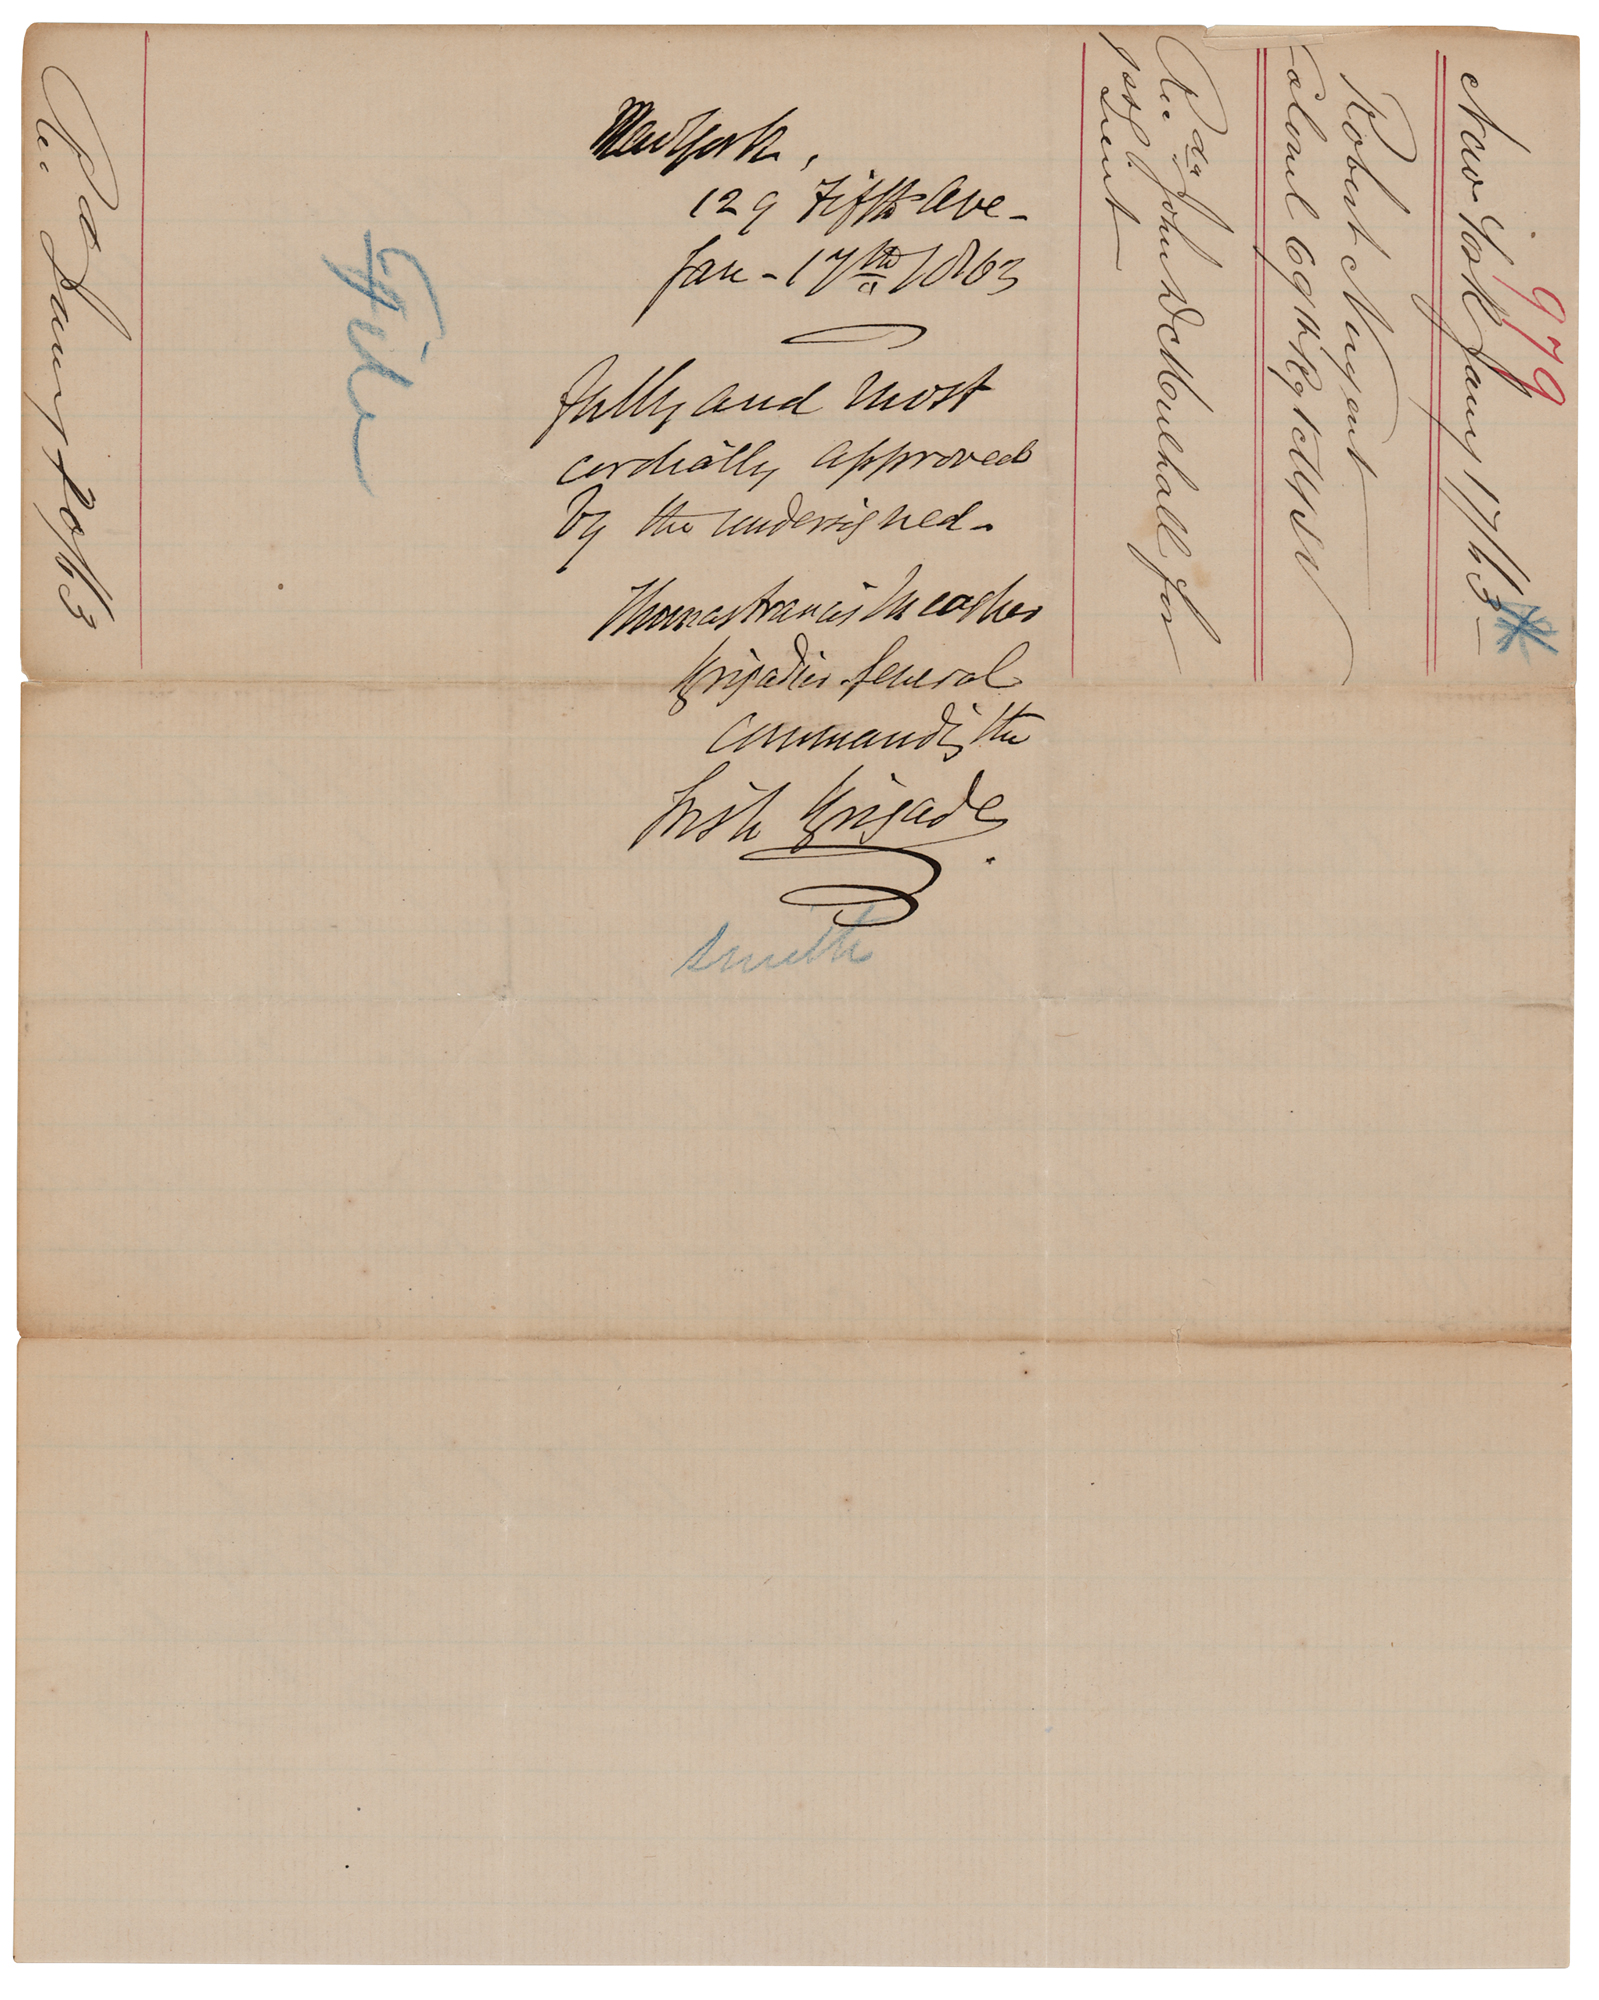 New York,
129 Fifth Ave -
Jan - 17th 1863
fully and most
cordially approved
by the undersigned -
Thomas Francis Meagher
Brigadier General
Commandg the
Irish Brigade.
Smith
File
979
New York Jany 17/63 -
Robert Nugent
Colonel 69th Regt
Rec John D Mulhall for
Lieut
Jany 20/63